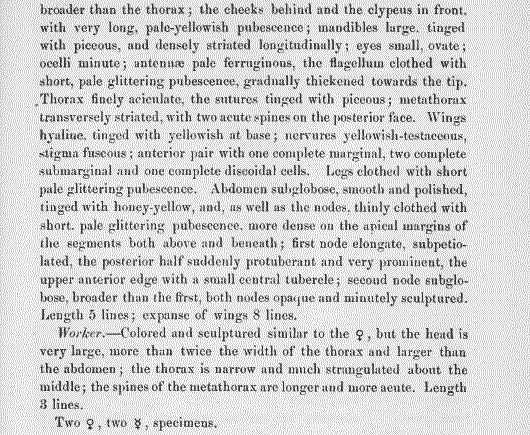 broader than the thorax; the cheeks behind and the clypeus in front,
with very long, pale-yellowish pubescence; mandibles large, tinged
with piceous, and densely striated longitudinally; eyes small, ovate;
ocelli minute; antennæ pale ferruginous, the flagellum clothed with
short, pale glittering pubescence, gradually thickened towards the tip.
Thorax finely aciculate, the sutures tinged with piceous; metathorax
transversely striated, with two acute spines on the posterior face. Wings
hyaline, tinged with yellowish at base; nervures yellowish-testaceous,
stigma fuscous; anterior pair with one complete marginal, two complete
submarginal and one complete discoidal cells. Legs clothed with short
pale glittering pubescence. Abdomen subglobose, smooth and polished,
tinged with honey-yellow, and, as well as the nodes, thinly clothed with
short, pale glittering pubescence, more dense on the apical margins of
the segments both above and beneath; first node elongate, subpetio-
lated, the posterior half suddenly protuberant and very prominent, the
upper anterior edge with a small central tubercle; second node subglo-
bose, broader than the first, both nodes opaque and minutely sculptured.
Length 5 lines; expanse of wings 8 lines.
Worker.—Colored and sculptured similar to the ♀, but the head is
very large, more than twice the width of the thorax and larger than
the abdomen; the thorax is narrow and much strangulated about the
middle; the spines of the metathorax are longer and more acute. Length
3 lines.
Two ♀, two ☿, specimens.